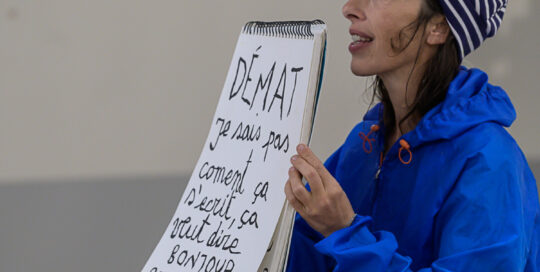 DÉMAT
je sais pas
coment ça
s'écrit, ça
veut dire
BONJOUR